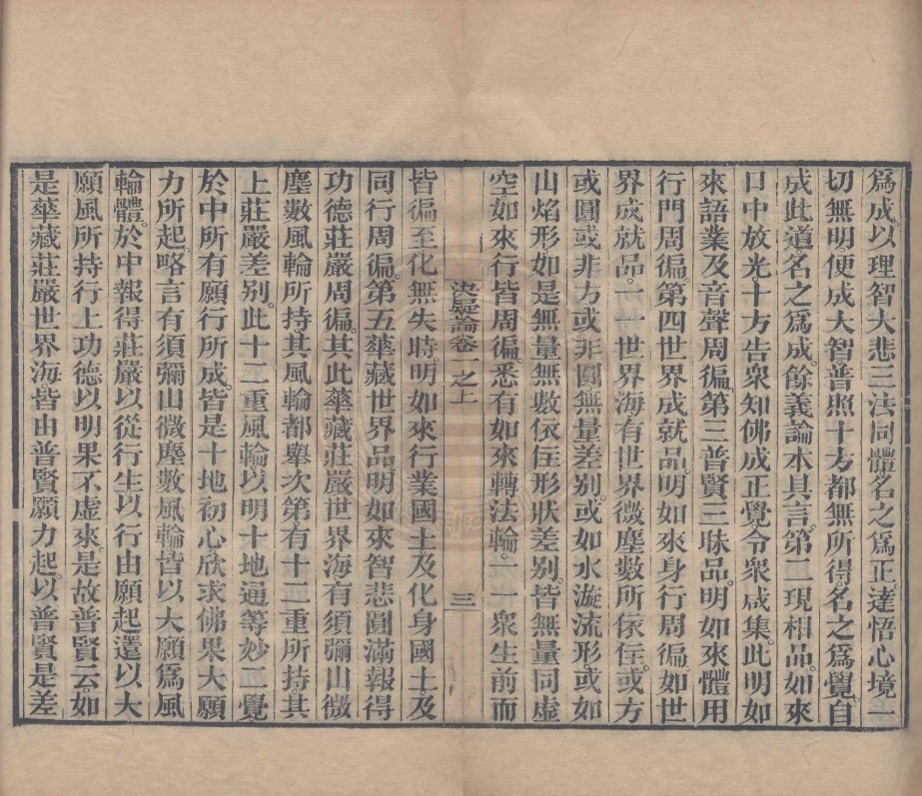 爲成以理智大悲三法同體名之爲正達悟心境一
切無明便成大智普照十方都無所得名之爲覺自
成此道名之爲成餘義論本具言第二現相品如來
口中放光十方告衆知佛成正覺令衆咸集此明如
來語業及音聲周徧第三普賢三昧品明如來體用
行門周徧第四世界成就品明如來身行周徧如世
界成就品一一世界海有世界微塵數所依住或方
或圓或非方或非圓無量差別或如水漩流形或如
山焰形如是無量無數依住形狀差別皆無量同虛
空如來行皆周徧悉有如來轉法輪一一衆生前而
決疑論卷一之上 三
皆徧至化無失時明如來行業國土及化身國土及
同行周徧第五華藏世界品明如來智悲圓滿報得
功德莊嚴周徧其此華藏莊嚴世界海有須彌山微
塵數風輪所持其風輪都舉次第有十二重所持其
上莊嚴差別此十二重風輪以明十地通等妙二覺
於中所有願行所成皆是十地初心欣求佛果大願
力所起略言有須彌山微塵數風輪皆以大願爲風
輪體於中報得莊嚴以從行生以行由願起還以大
願風所持行上功德以明果不虛來是故普賢云如
是華藏莊嚴世界海皆由普賢願力起以普賢是差